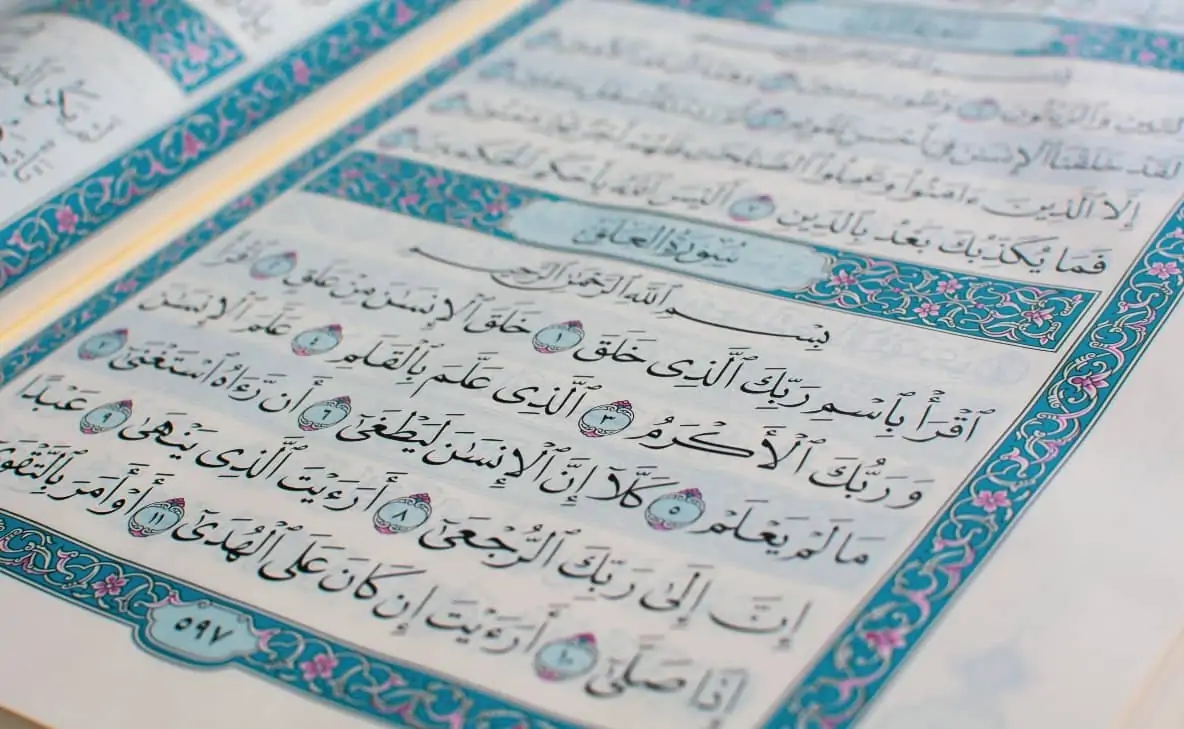 وَٱلتِّينِ وَٱلزَّيْتُونِ ١ وَطُورِ سِينِينَ
لَقَدْ خَلَقْنَا ٱلْإِنسَٰنَ فِىٓ أَحْسَنِ تَقْوِيمٍ
إِلَّا ٱلَّذِينَ ءَامَنُوا۟ وَعَمِلُوا۟ ٱلصَّٰلِحَٰتِ فَلَهُمْ أَجْرٌ غَيْرُ مَمْنُونٍ
فَمَا يُكَذِّبُكَ بَعْدُ بِٱلدِّينِ ٧ أَلَيْسَ ٱللَّهُ بِأَحْكَمِ ٱلْحَٰكِمِينَ ٨
سُورَةُ العَلَقِ
بِسْمِ ٱللَّهِ ٱلرَّحْمَٰنِ ٱلرَّحِيمِ
ٱقْرَأْ بِٱسْمِ رَبِّكَ ٱلَّذِى خَلَقَ ١ خَلَقَ ٱلْإِنسَٰنَ مِنْ عَلَقٍ ٢ ٱقْرَأْ
وَرَبُّكَ ٱلْأَكْرَمُ ٣ ٱلَّذِى عَلَّمَ بِٱلْقَلَمِ ٤ عَلَّمَ ٱلْإِنسَٰنَ
مَا لَمْ يَعْلَمْ ٥ كَلَّآ إِنَّ ٱلْإِنسَٰنَ لَيَطْغَىٰٓ ٦ أَن رَّءَاهُ ٱسْتَغْنَىٰٓ ٧
إِنَّ إِلَىٰ رَبِّكَ ٱلرُّجْعَىٰٓ ٨ أَرَءَيْتَ ٱلَّذِى يَنْهَىٰ ٩ عَبْدًا
إِذَا صَلَّىٰٓ ١٠ أَرَءَيْتَ إِن كَانَ عَلَى ٱلْهُدَىٰٓ ١١ أَوْ أَمَرَ بِٱلتَّقْوَىٰٓ
٥٩٧